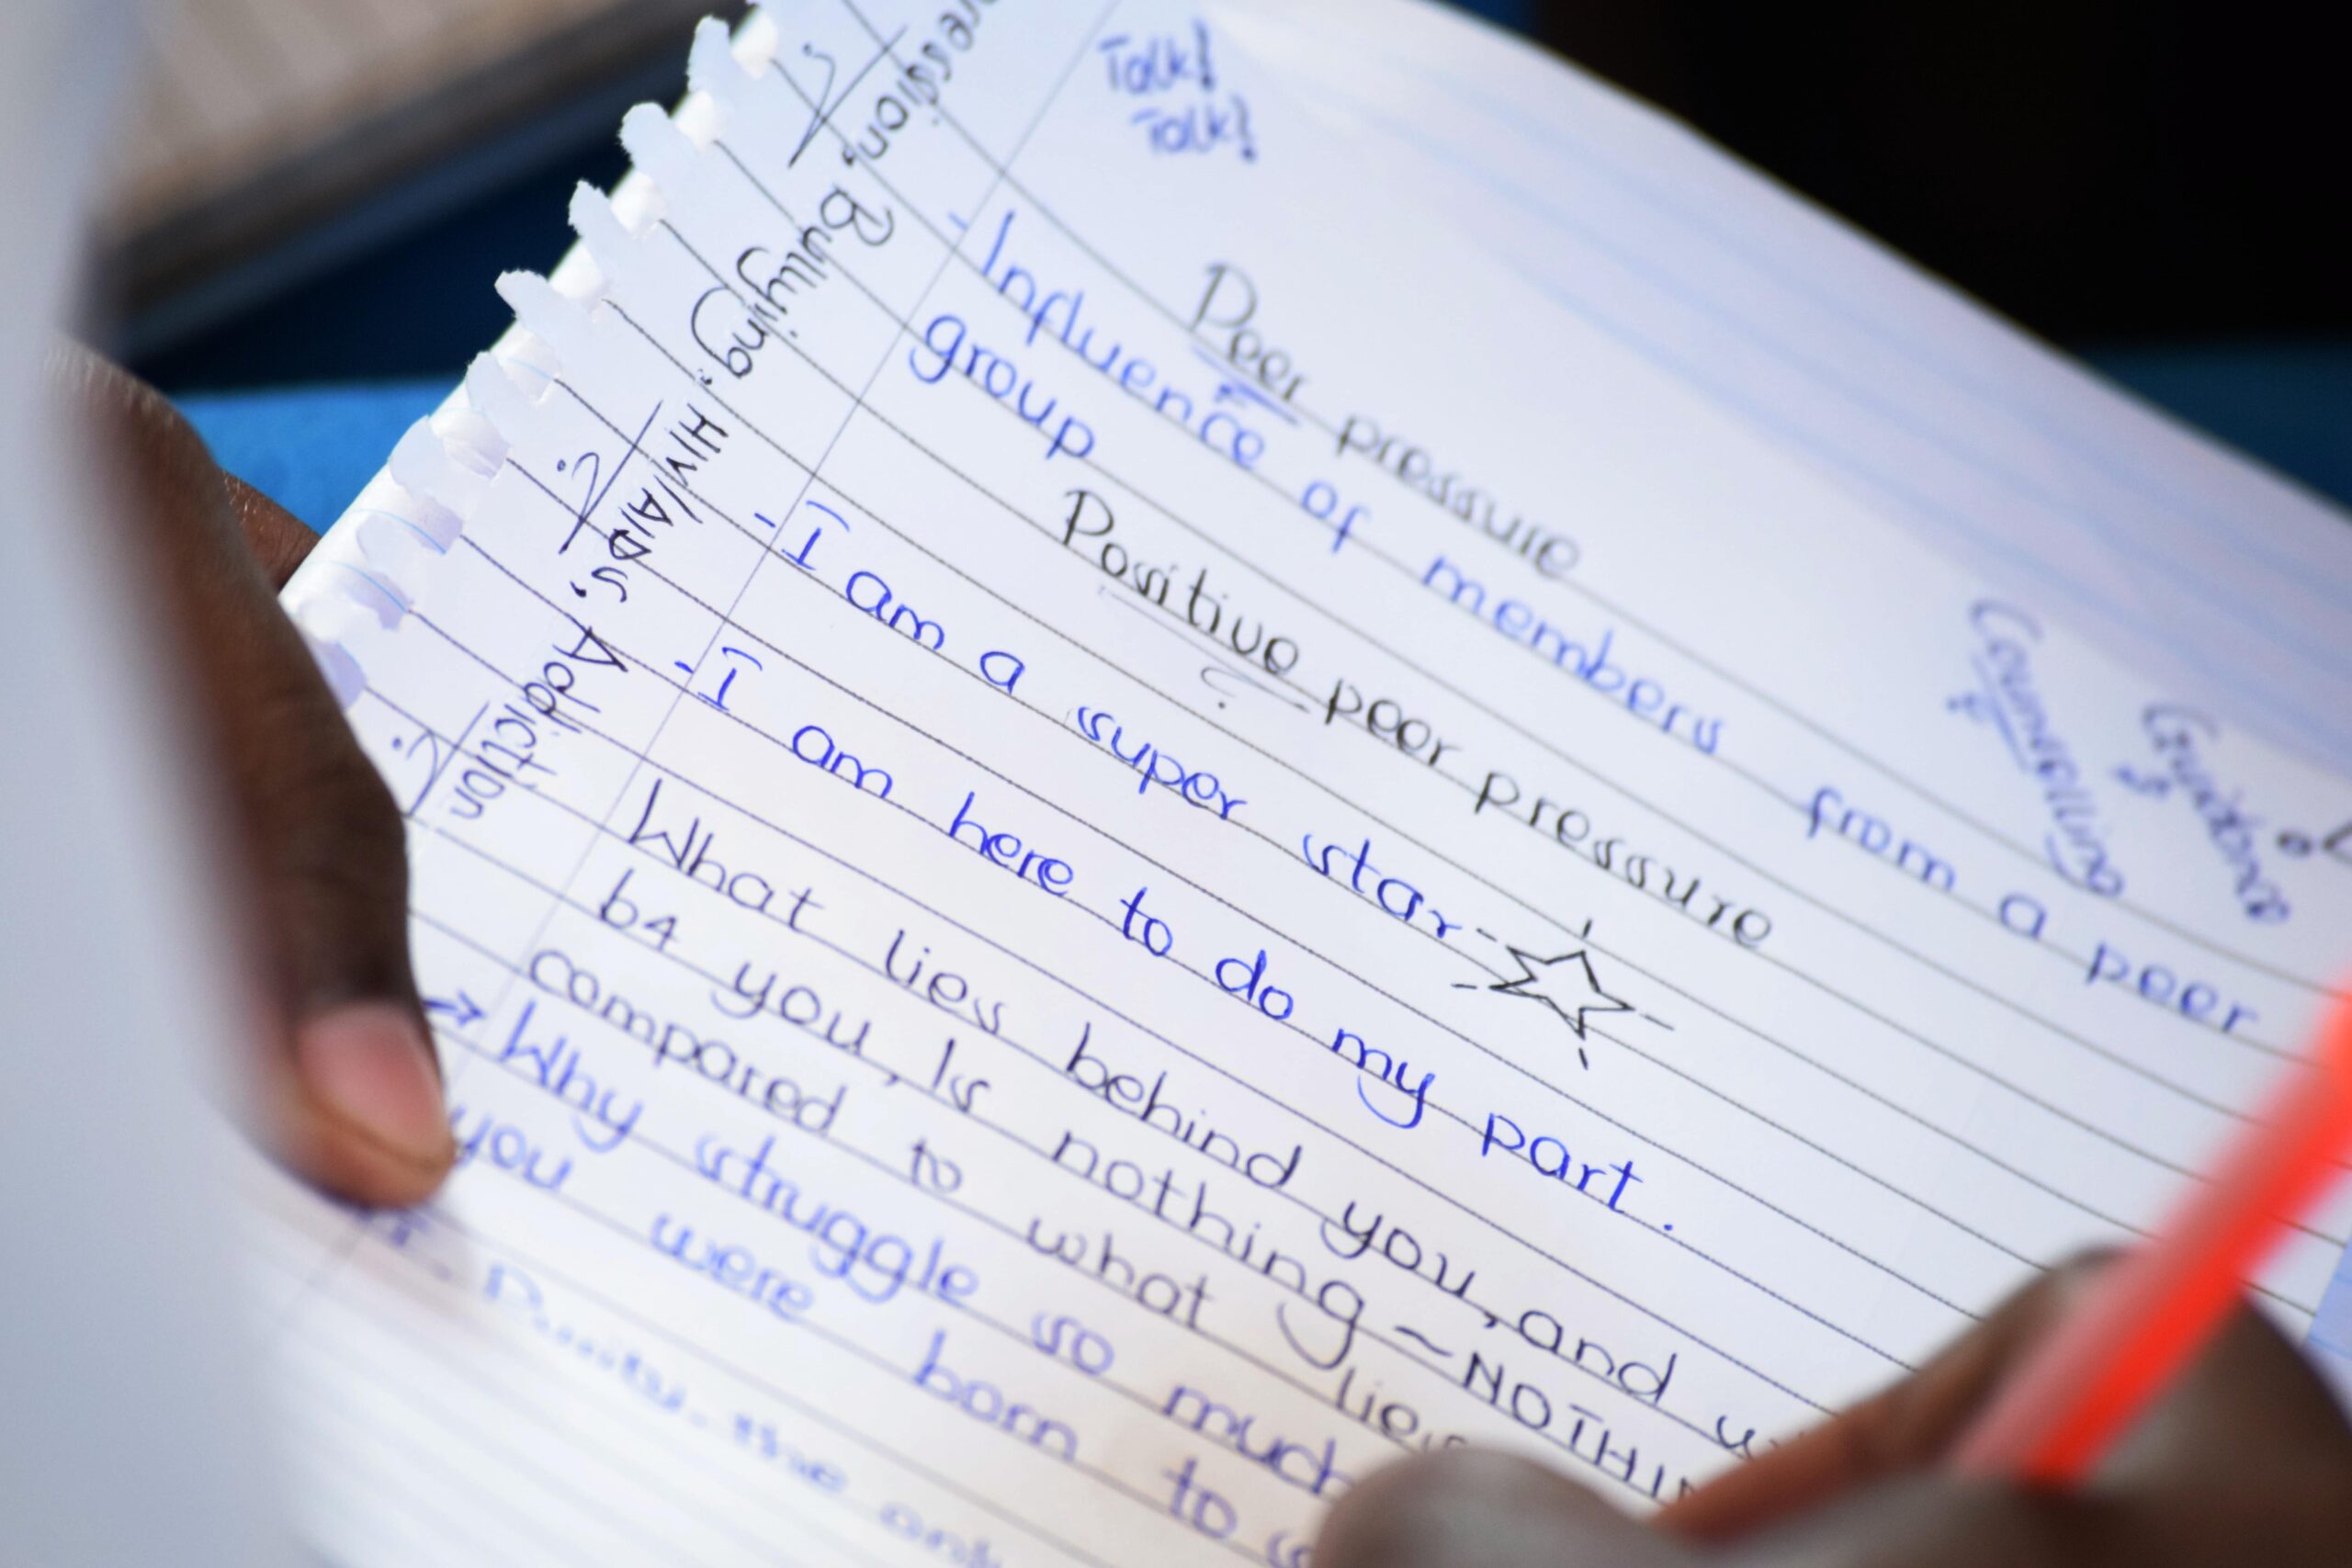 Talk!
Talk!
Peer pressure
- Influence of members from a peer
group
Counselling
Positive peer pressure
- I am a super star
- I am here to do my part.
What lies behind you, and
b4 you, Is nothing ~ NOTHIN
compared to what lies
→ Why struggle so much
you were born to
the only
ression, Bullying, HIV/AIDs, Addiction